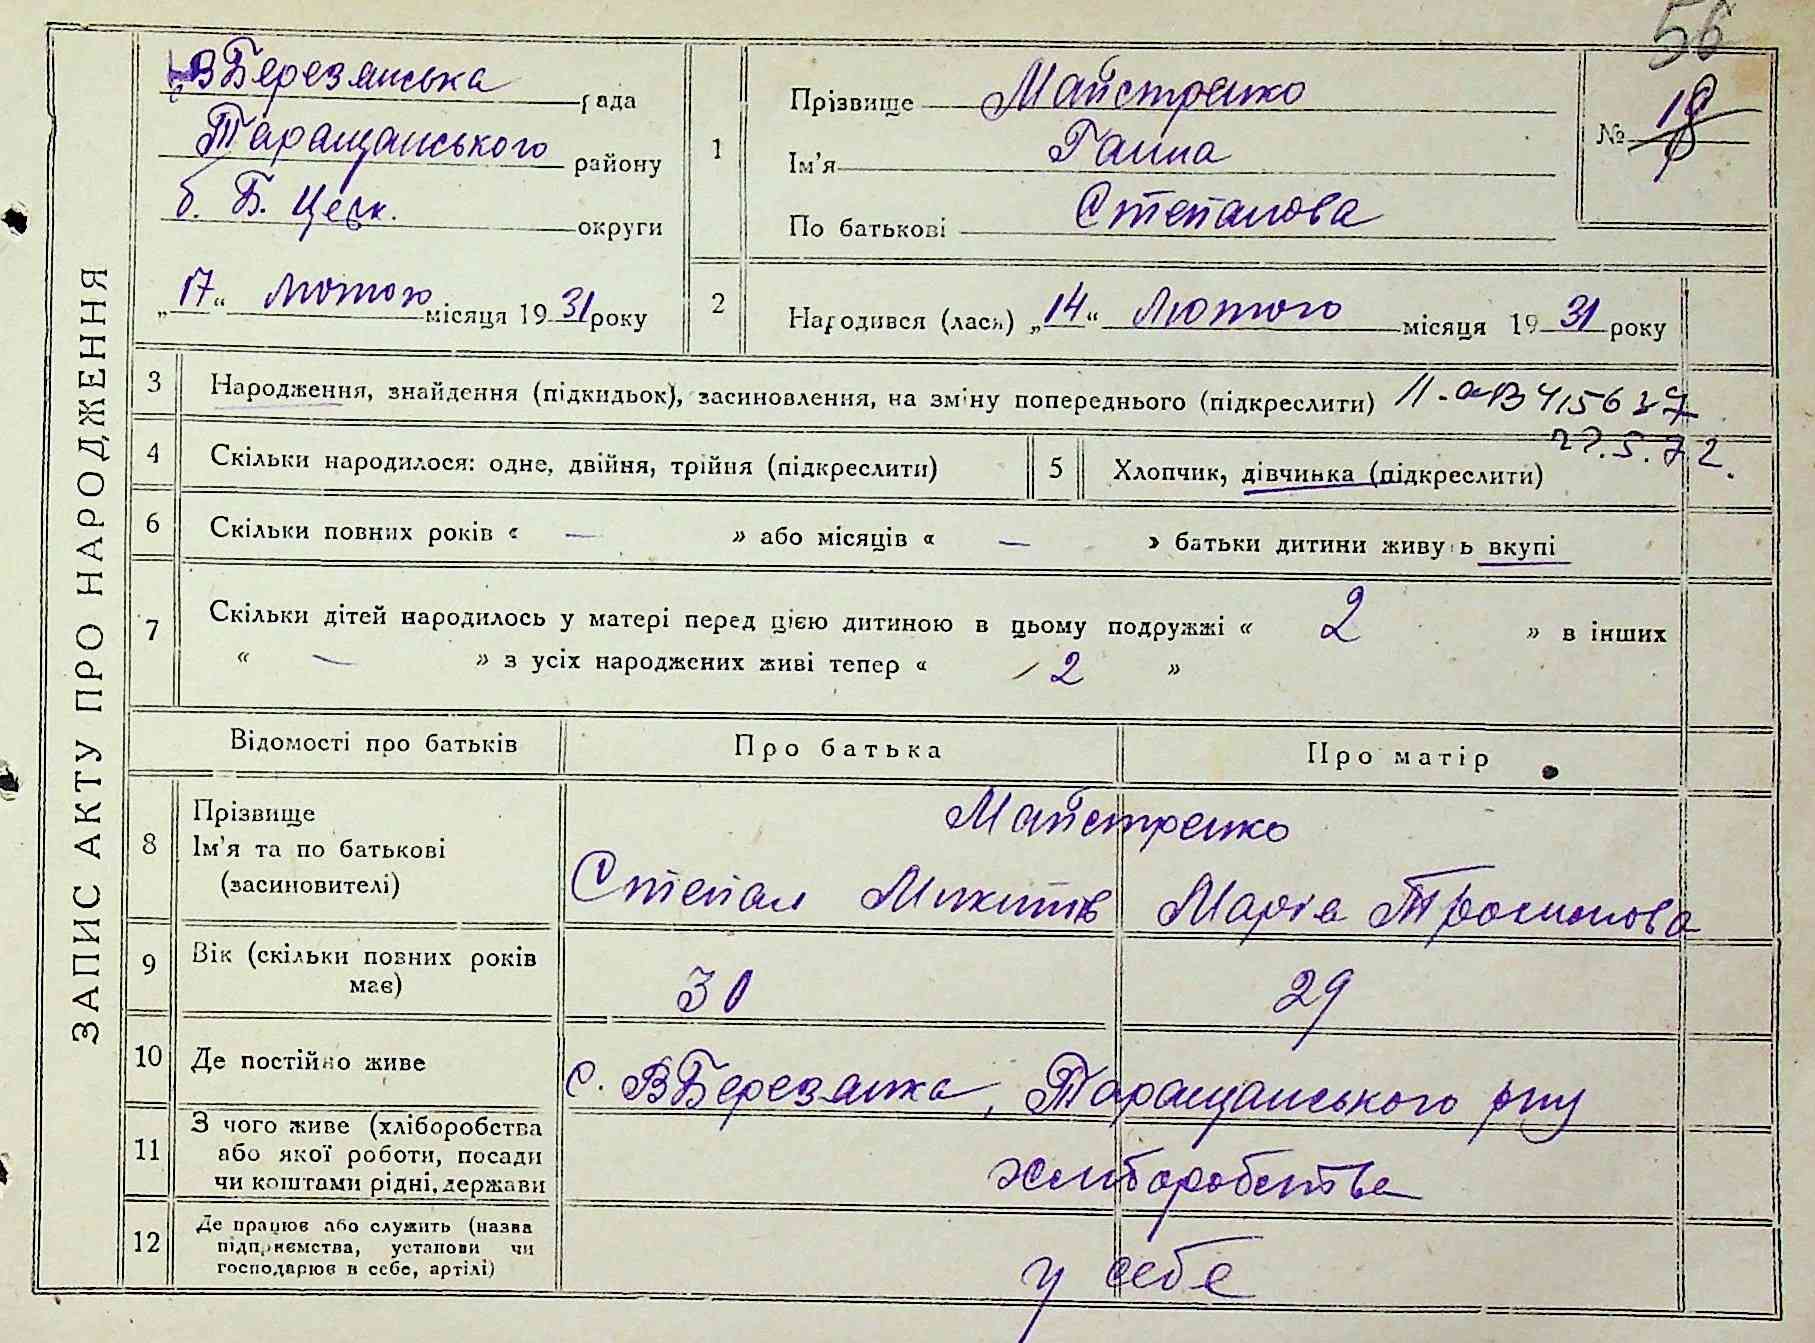 56
ЗАПИС АКТУ ПРО НАРОДЖЕННЯ
ВБерезянська рада
Таращанського району
б. Б. Церк. округи
„17“ лютого місяця 1931 року
1 Прізвище Майстренко
Ім'я Ганна
По батькові Степанова
№ 18
2 Народився (лася) „14“ Лютого місяця 1931 року
3 Народження, знайдення (підкидьок), засиновлення, на зміну попереднього (підкреслити)
22.5.72.
4 Скільки народилося: одне, двійня, трійня (підкреслити) 5 Хлопчик, дівчинка (підкреслити)
6 Скільки повних років « — » або місяців « — » батьки дитини живуть вкупі
7 Скільки дітей народилось у матері перед цією дитиною в цьому подружжі « 2 » в інших
« — » з усіх народжених живі тепер « 2 »
Відомості про батьків Про батька Про матір
8 Прізвище
Ім'я та по батькові
(засиновителі)
Майстренко
Степан Микитів Марія Трохимова
9 Вік (скільки повних років
має)
30 29
10 Де постійно живе с. ВБерезянка, Таращанського р-ну
11 З чого живе (хліборобства
або якої роботи, посади
чи коштами рідні, держави
хліборобства
12 Де працює або служить (назва
підприємства, установи чи
господарює в себе, артілі)
у себе